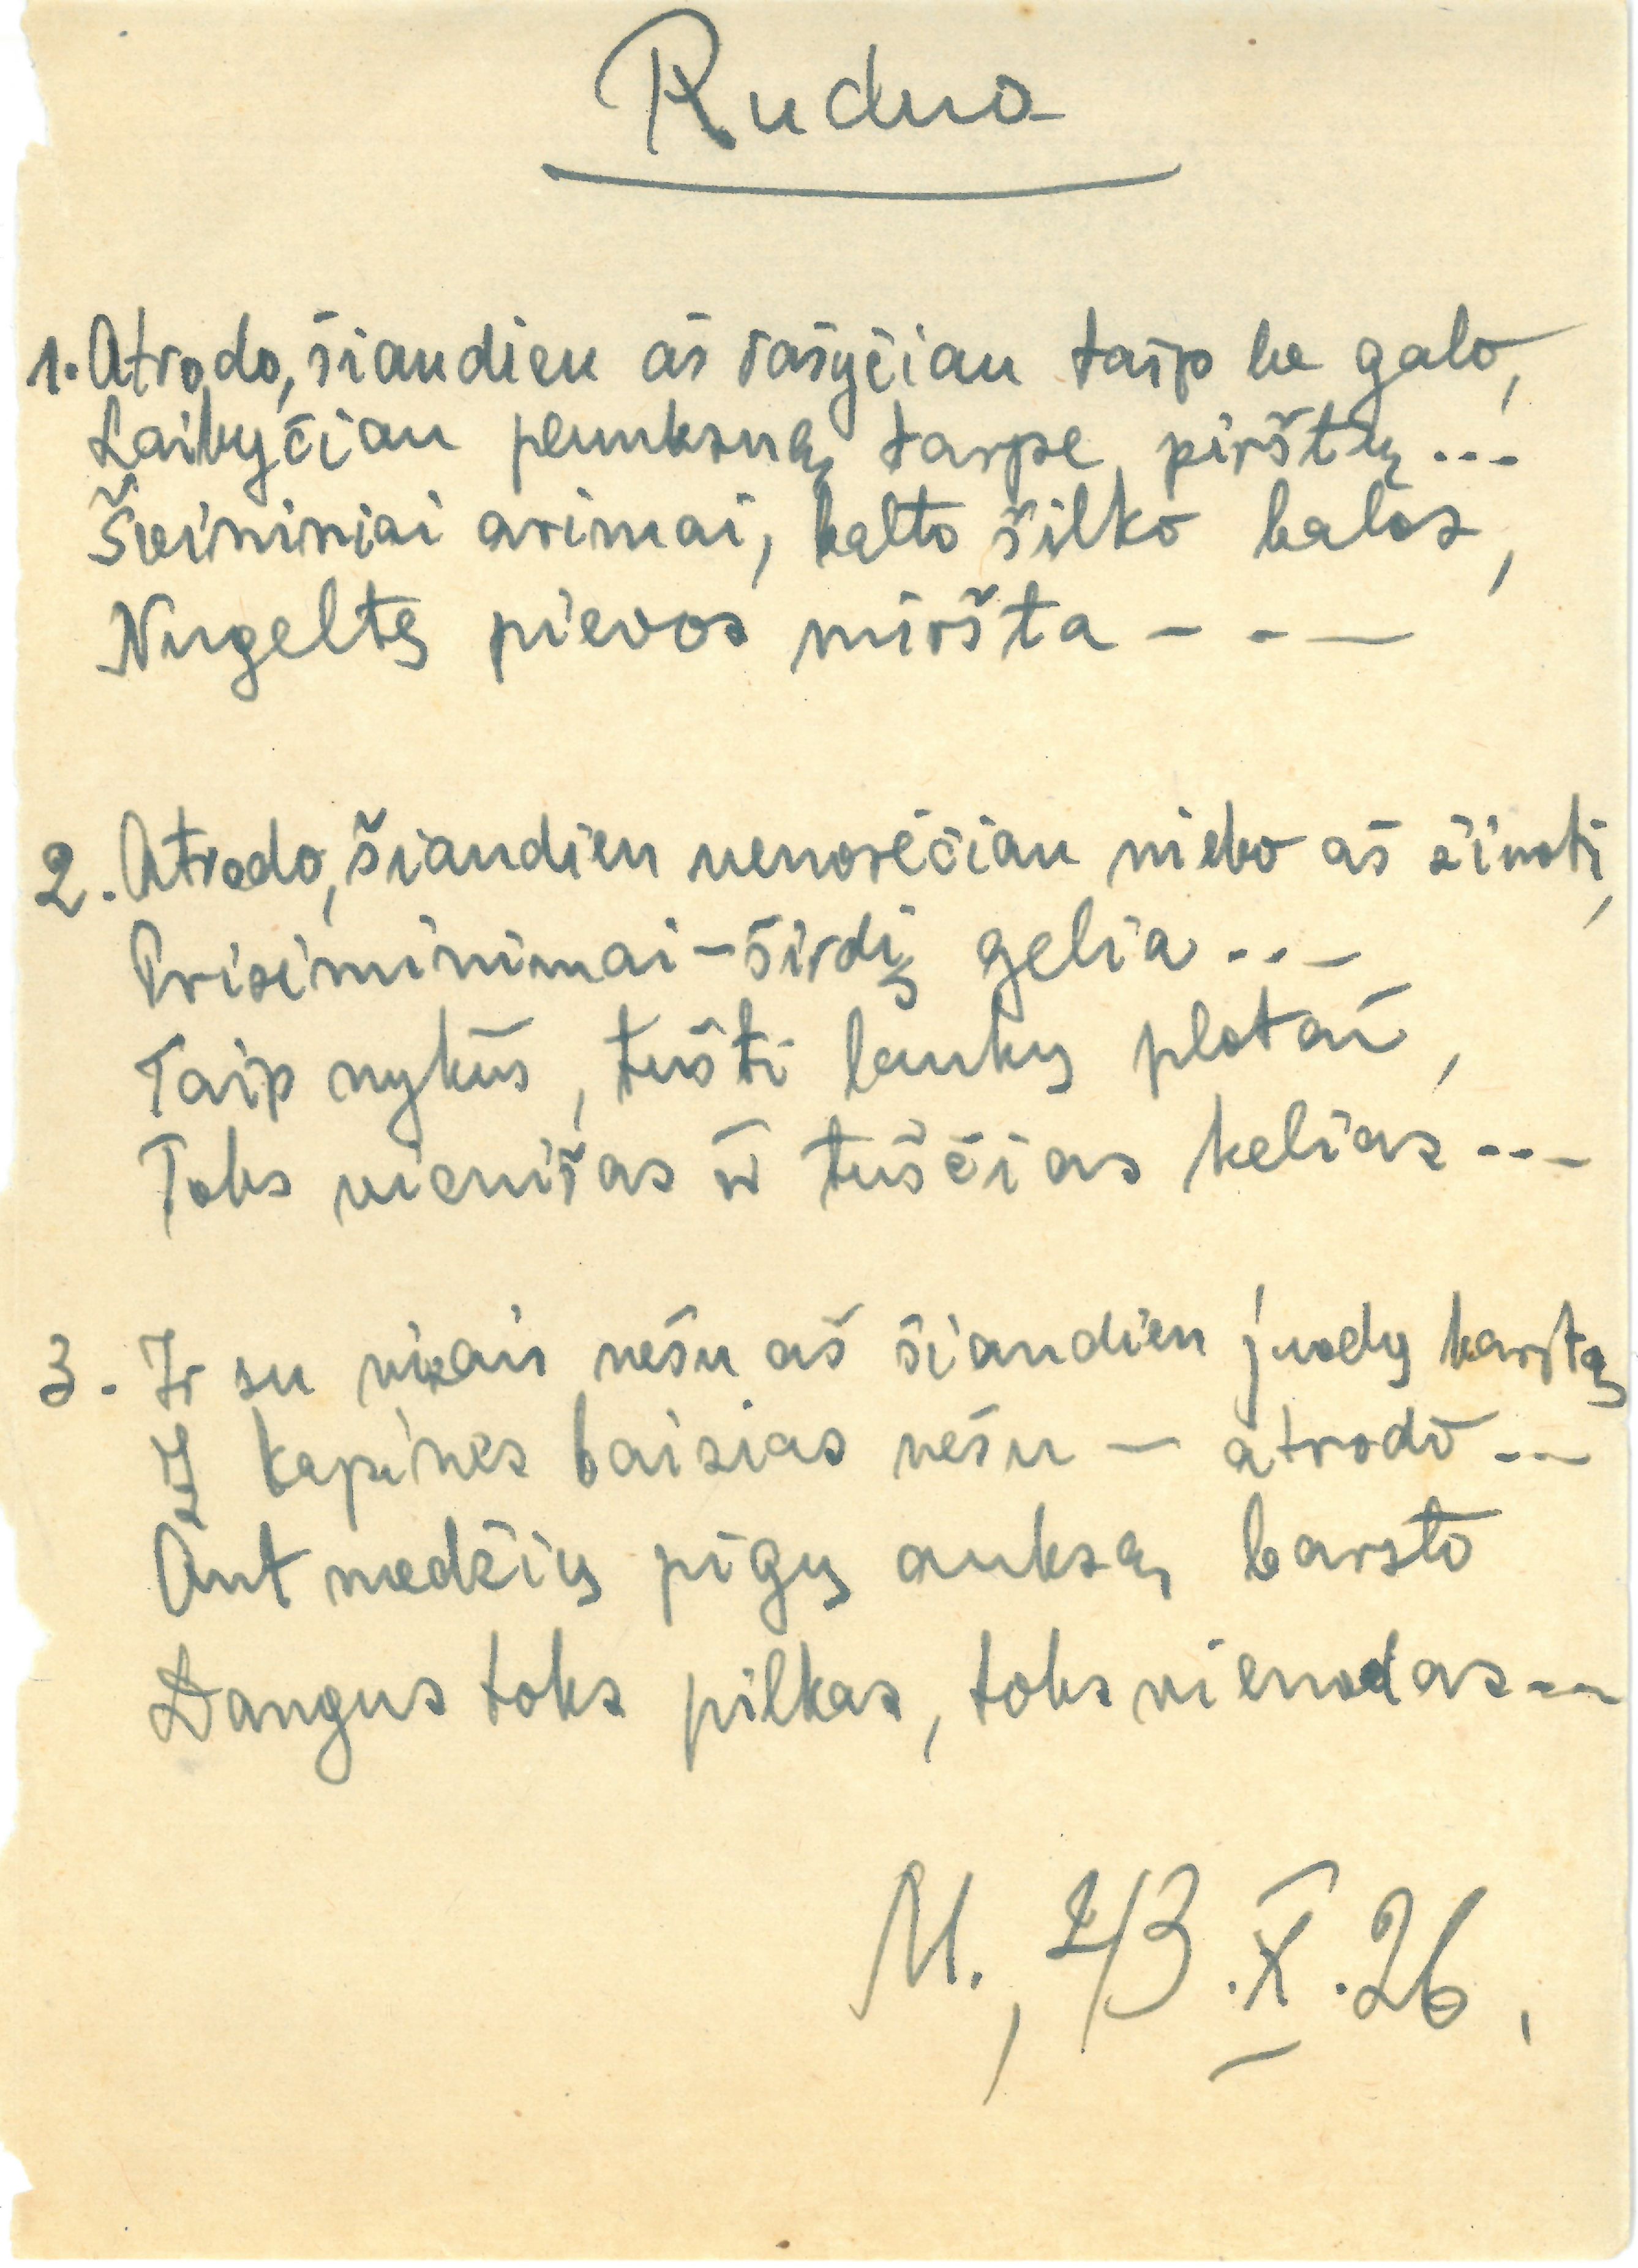 Ruduo
1. Atrodo, šiandien aš rašyčiau taip be galo,
Laikyčiau plunksną tarpe pirštų...
Švininiai arimai, balto šilko balos,
Nugeltę pievos miršta - - -
2. Atrodo, šiandien nenorėčiau nieko aš žinoti,
Prisiminimai - širdį gelia...
Taip nykūs, tušti laukų plotai,
Toks vienišas ir tuščias kelias...
3. Ir su vizais nešu aš šiandien juodą karstą
Į kapines baisias nešu — atrodo...
Ant medžių pigų auksą barsto
Dangus toks pilkas, toks vienodas...
M., 43.X.26.